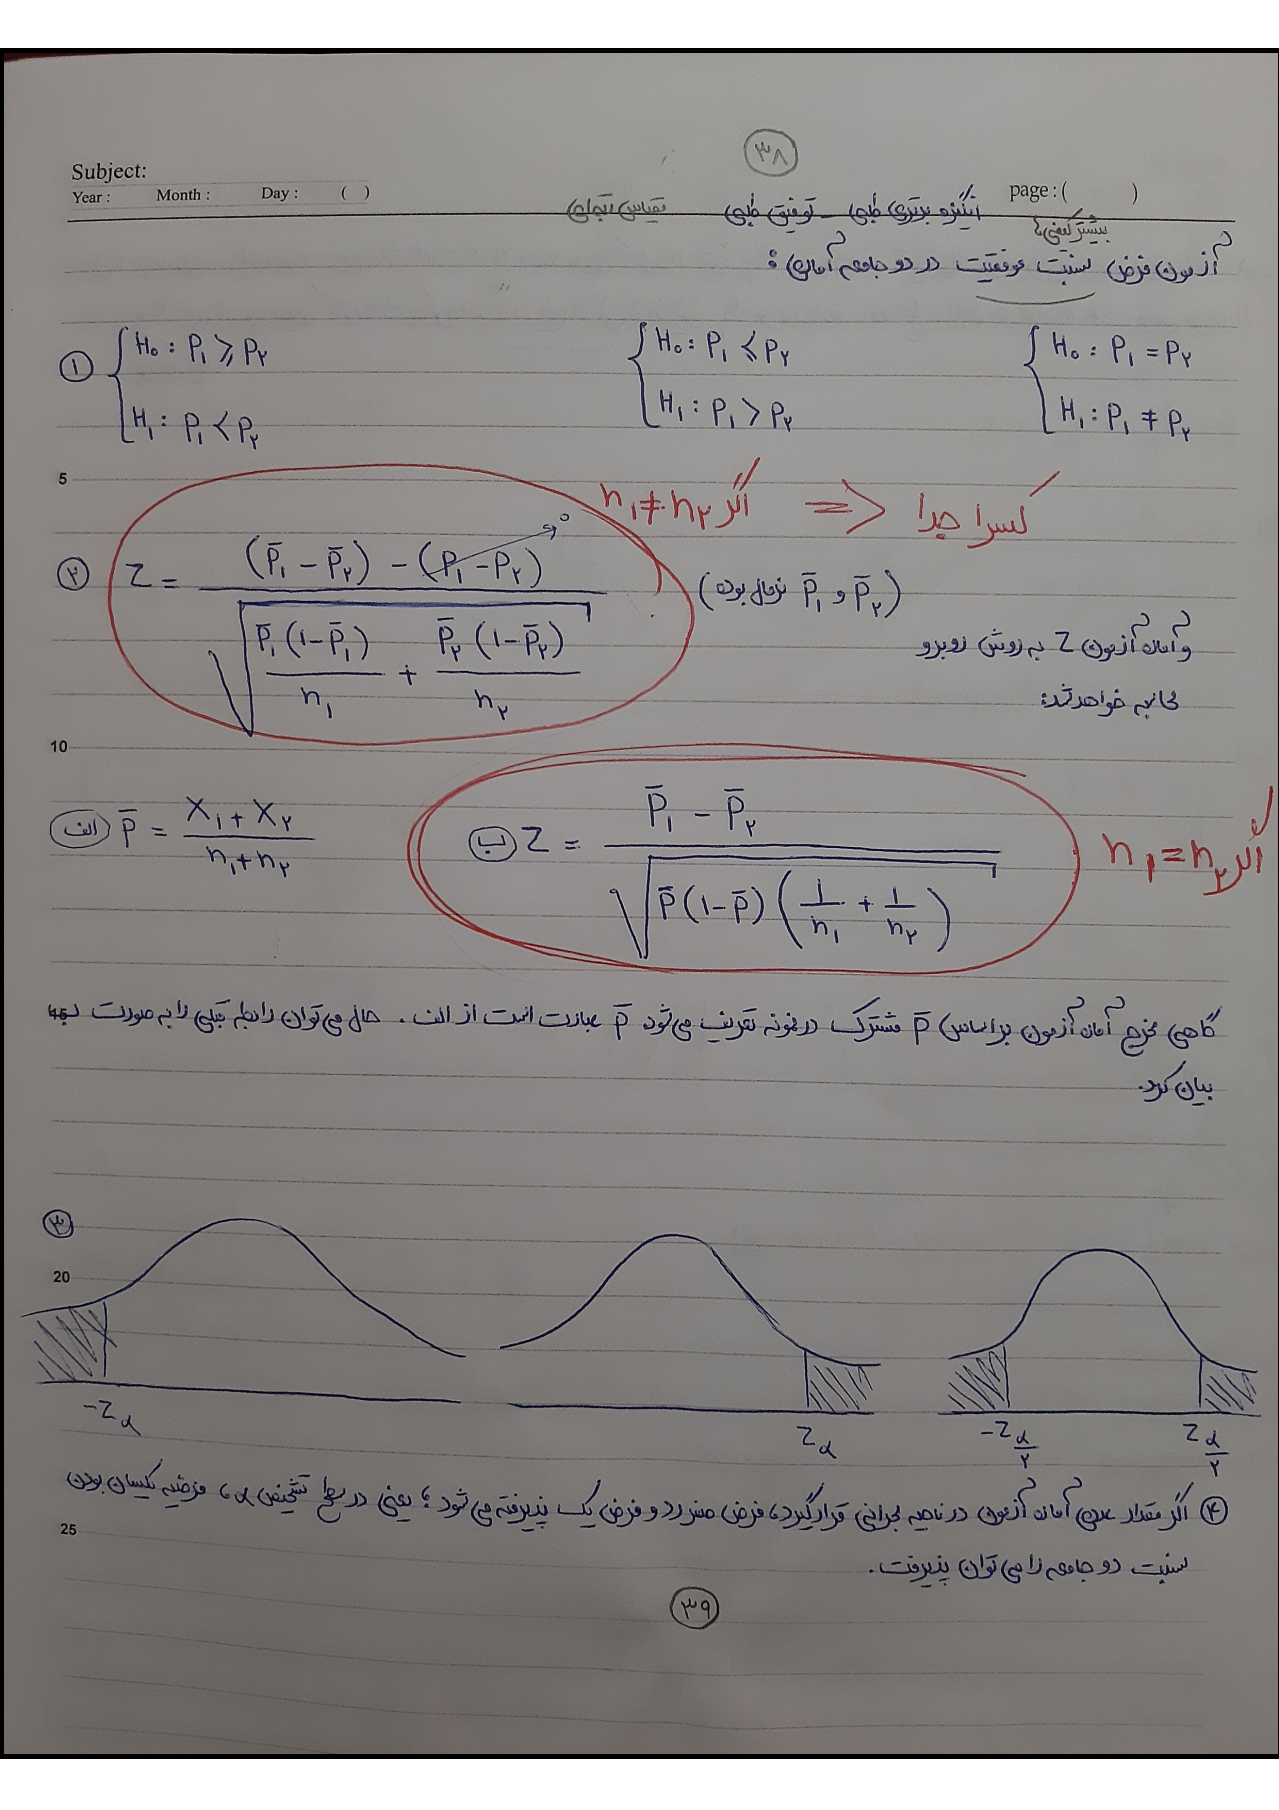 ۳۸
Subject:
Year : Month : Day : ( )
page : ( )
انگیزه برتری طلبی - توفیق طلبی
بیشتر کیفی ها
آزمون فرض نسبت موفقیت در دو جامعه آماری :
① H₀ : P₁ ⩾ P₂ H₀ : P₁ ⩽ P₂ H₀ : P₁ = P₂
H₁ : P₁ < P₂ H₁ : P₁ > P₂ H₁ : P₁ ≠ P₂
5
اگر n₁ ≠ n₂ ⇐ کسرا جدا
② Z = ((P̄₁ - P̄₂) - (P₁ - P₂) → ۰) / √(P̄₁(1-P̄₁)/n₁ + P̄₂(1-P̄₂)/n₂)
(P̄₂ و P̄₁ نرمال بوده)
و آماره آزمون Z به روش روبرو
محاسبه خواهد شد:
10
الف P̄ = (X₁ + X₂) / (n₁ + n₂)
ب Z = (P̄₁ - P̄₂) / √(P̄(1-P̄)(1/n₁ + 1/n₂))
اگر n₁ = n₂
گاهی مخرج آماره آزمون بر اساس P̄ مشترک در نمونه تعریف می‌شود P̄ عبارت است از الف . حال می‌توان رابطه قبلی را به صورت ب
بیان کرد.
③
20
-Zα Zα -Zα/۲ Zα/۲
④ اگر مقدار عددی آماره آزمون در ناحیه بحرانی قرار گیرد، فرض صفر رد و فرض یک پذیرفته می شود ؛ یعنی در سطح تشخیص α، فرضیه یکسان بودن
25
نسبت دو جامعه را می توان پذیرفت .
۳۹